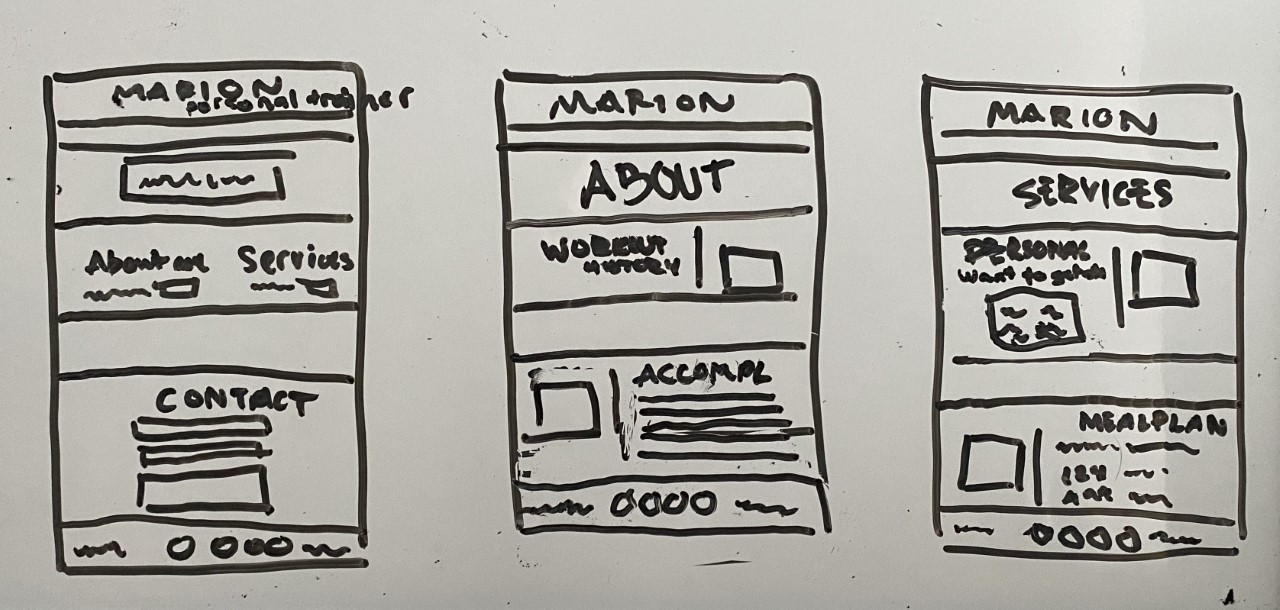 MARION
personal trainer
About me
Services
CONTACT
MARION
ABOUT
WORKOUT
HISTORY
ACCOMPL
MARION
SERVICES
PERSONAL
want to
MEALPLAN